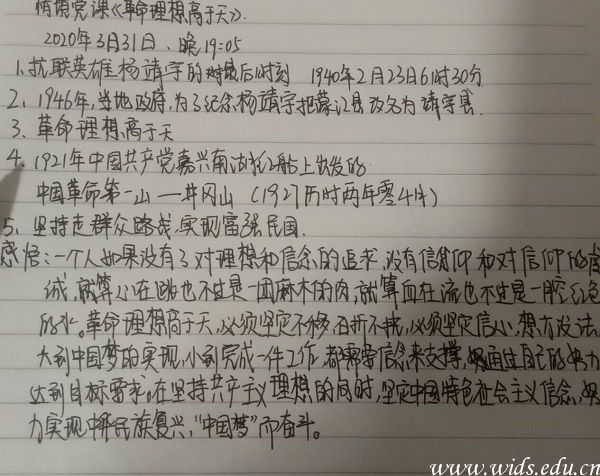 情境党课《革命理想高于天》.
2020年3月31日.晚19:05
1.抗联英雄杨靖宇的最后时刻 1940年2月23日6时30分
2、1946年,当地政府,为了纪念杨靖宇把蒙江县改名为靖宇县.
3、革命理想高于天
4、1921年中国共产党嘉兴南湖红船上出发的
中国革命第一山—井冈山(1927历时两年零4个月)
5、坚持走群众路线,实现富强民国.
感悟:一个人如果没有了对理想和信念的追求,没有信仰和对信仰的虔
诚,就算心在跳也不过是一团麻木的肉,就算血在流也不过是一腔红色
的水。革命理想高于天,必须坚定不移,百折不挠,必须坚定信心,想方设法.
大到中国梦的实现,小到完成一件工作,都需要信念来支撑,通过自己的努力
达到目标需求。在坚持共产主义理想的同时,坚定中国特色社会主义信念,努
力实现中华民族复兴,"中国梦"而奋斗。
www.wids.edu.cn